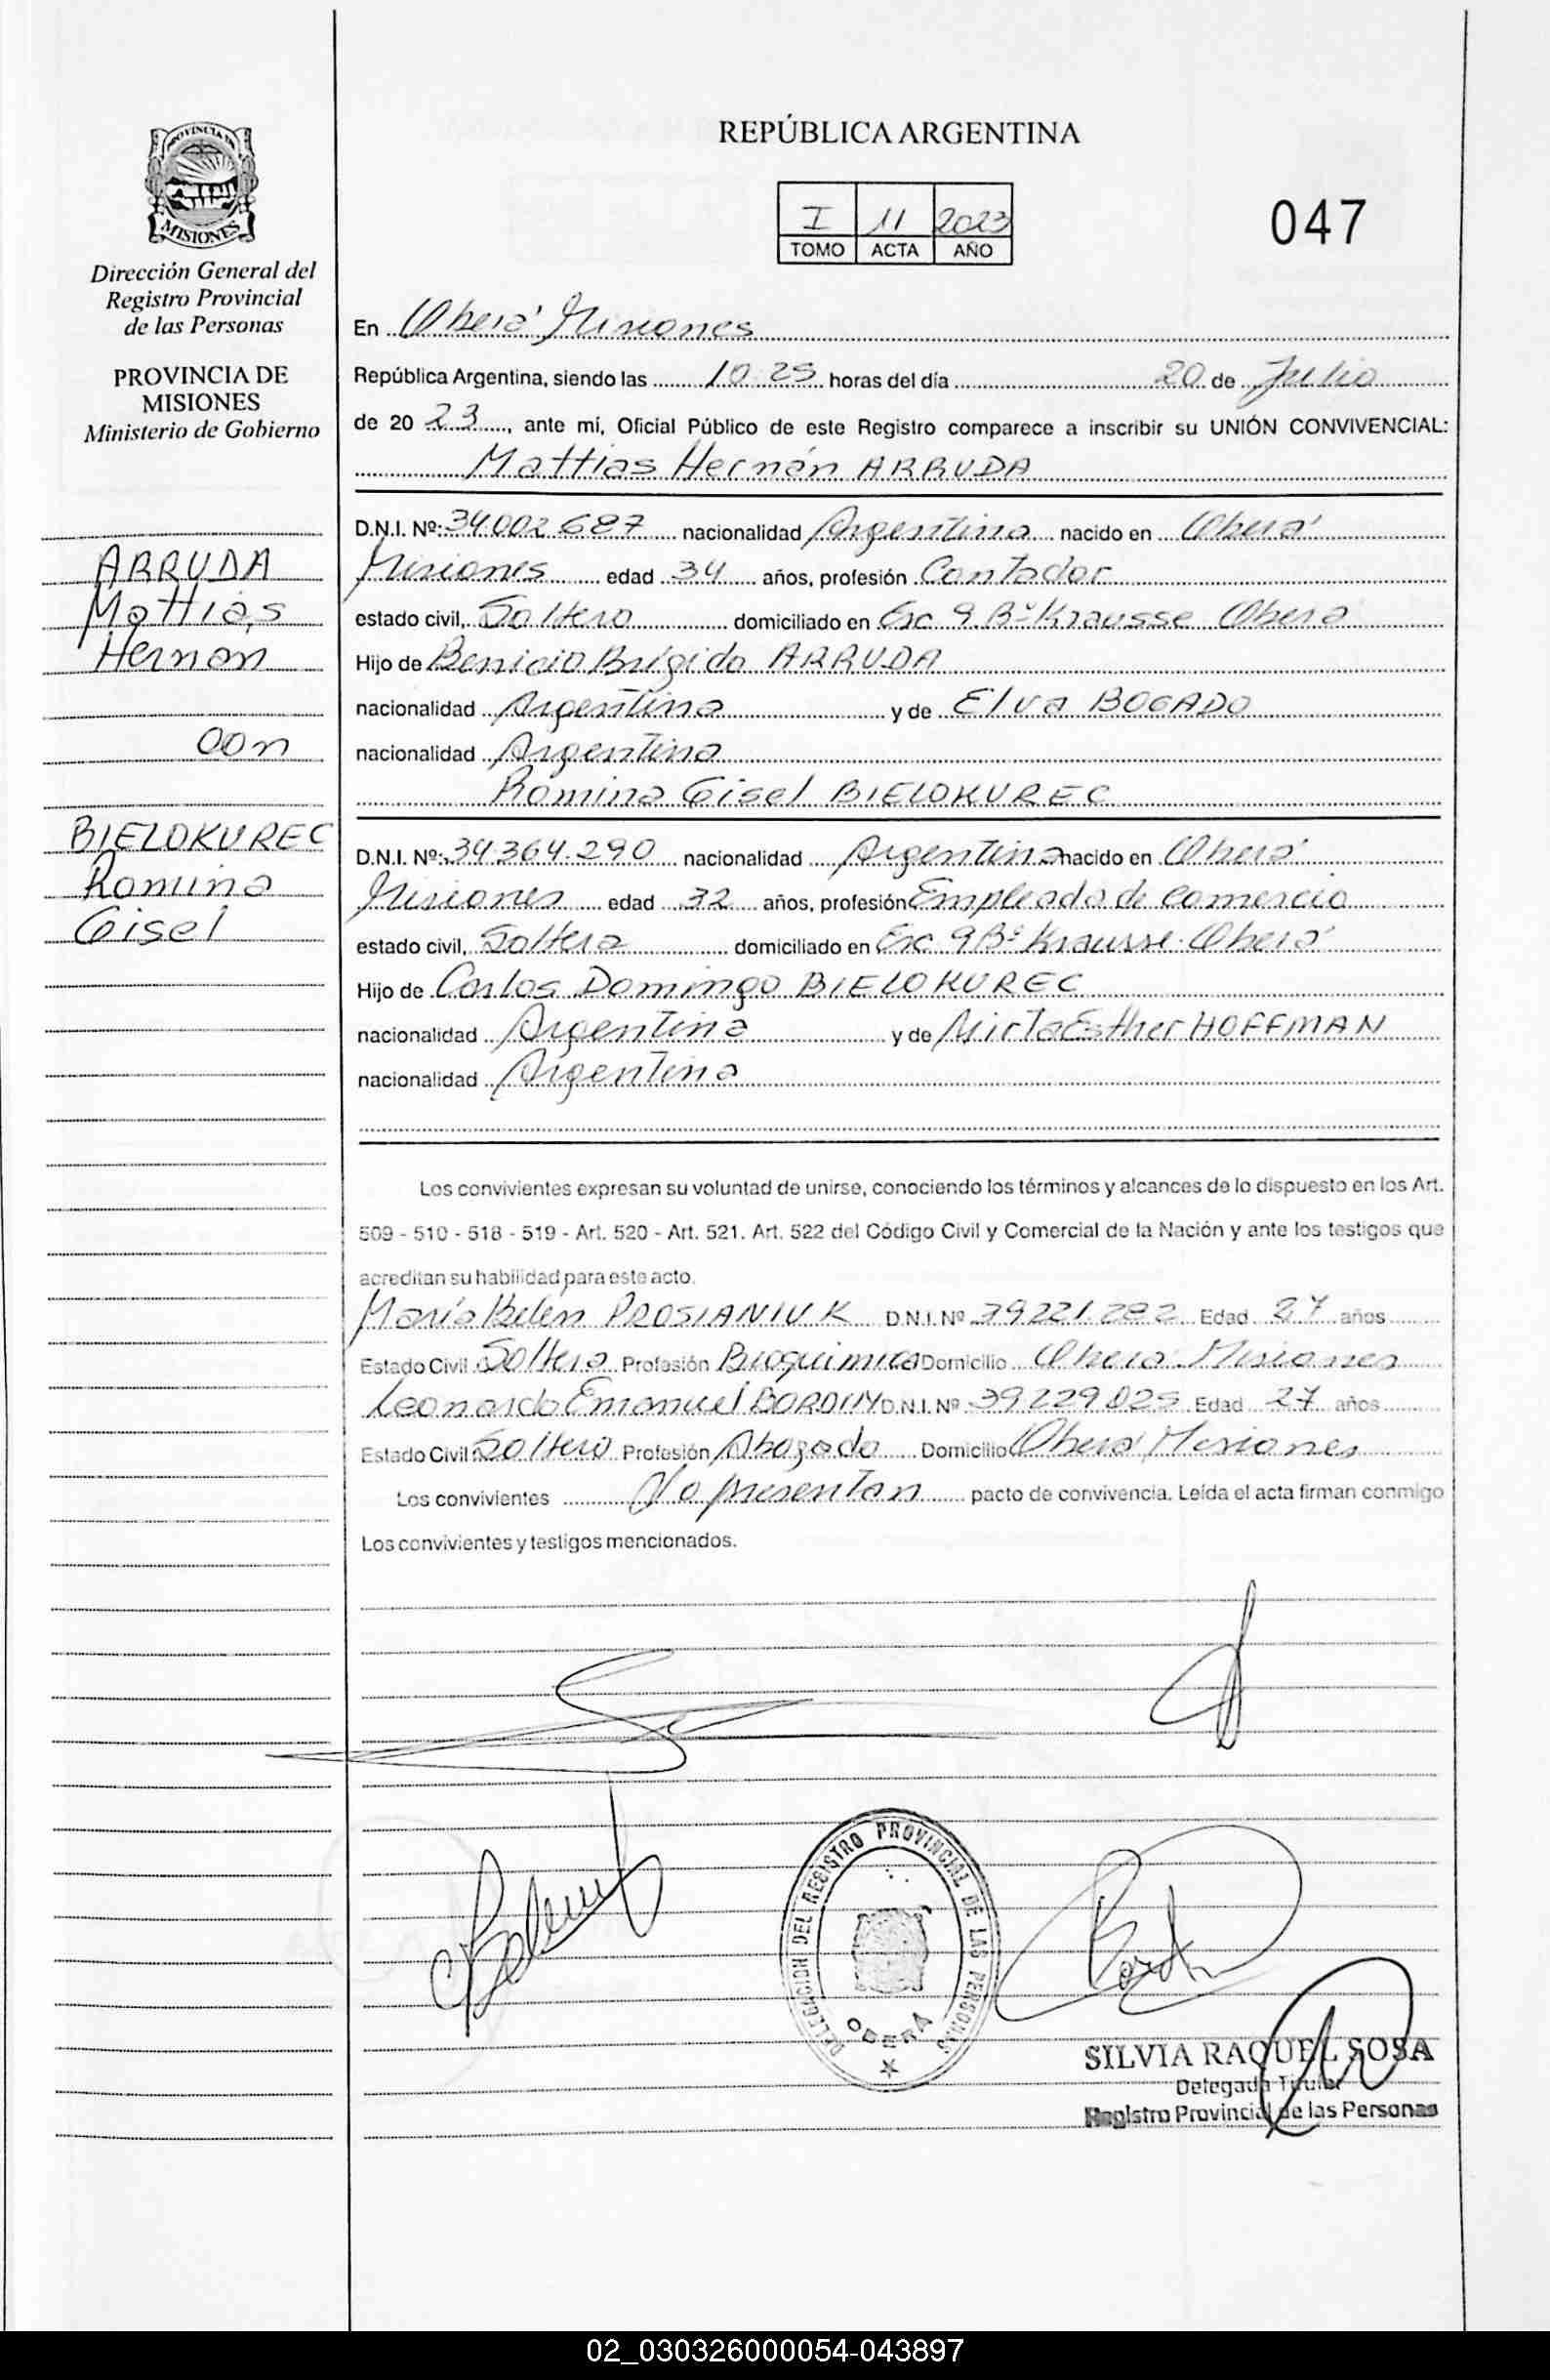 PROVINCIA DE
MISIONES
Dirección General del
Registro Provincial
de las Personas
PROVINCIA DE
MISIONES
Ministerio de Gobierno
ARRUDA
Mattias
Hernan
con
BIELOKUREC
Romina
Gisel
REPÚBLICA ARGENTINA
I 11 2023
TOMO ACTA AÑO
047
En Oberá Misiones
República Argentina, siendo las 10:25 horas del día 20 de Julio
de 20 23, ante mí, Oficial Público de este Registro comparece a inscribir su UNIÓN CONVIVENCIAL:
Mattias Hernán ARRUDA
D.N.I. Nº: 34.002.687 nacionalidad Argentina nacido en Oberá
Misiones edad 34 años, profesión Contador
estado civil, Soltero domiciliado en Esc 9 Bº Krausse Oberá
Hijo de Benicio Brígido ARRUDA
nacionalidad Argentina y de Elva BOGADO
nacionalidad Argentina
Romina Gisel BIELOKUREC
D.N.I. Nº: 34.364.290 nacionalidad Argentina nacido en Oberá
Misiones edad 32 años, profesión Empleada de comercio
estado civil, Soltera domiciliado en Esc 9 Bº Krausse Oberá
Hijo de Carlos Domingo BIELOKUREC
nacionalidad Argentina y de Mirta Esther HOFFMAN
nacionalidad Argentina
Los convivientes expresan su voluntad de unirse, conociendo los términos y alcances de lo dispuesto en los Art.
509 - 510 - 518 - 519 - Art. 520 - Art. 521. Art. 522 del Código Civil y Comercial de la Nación y ante los testigos que
acreditan su habilidad para este acto.
María Belén PROSIANIUK D.N.I. Nº 39221.282 Edad 27 años
Estado Civil Soltera Profesión Bioquimica Domicilio Oberá Misiones
Leonardo Emanuel D.N.I. Nº 39229.025 Edad 27 años
Estado Civil Soltero Profesión Abogado Domicilio Oberá Misiones
Los convivientes No presentan pacto de convivencia. Leída el acta firman conmigo
Los convivientes y testigos mencionados.
DELEGACION DEL REGISTRO PROVINCIAL DE LAS PERSONAS
OBERÁ
SILVIA RAQUEL SOSA
Delegada Titular
Registro Provincial de las Personas
02_030326000054-043897